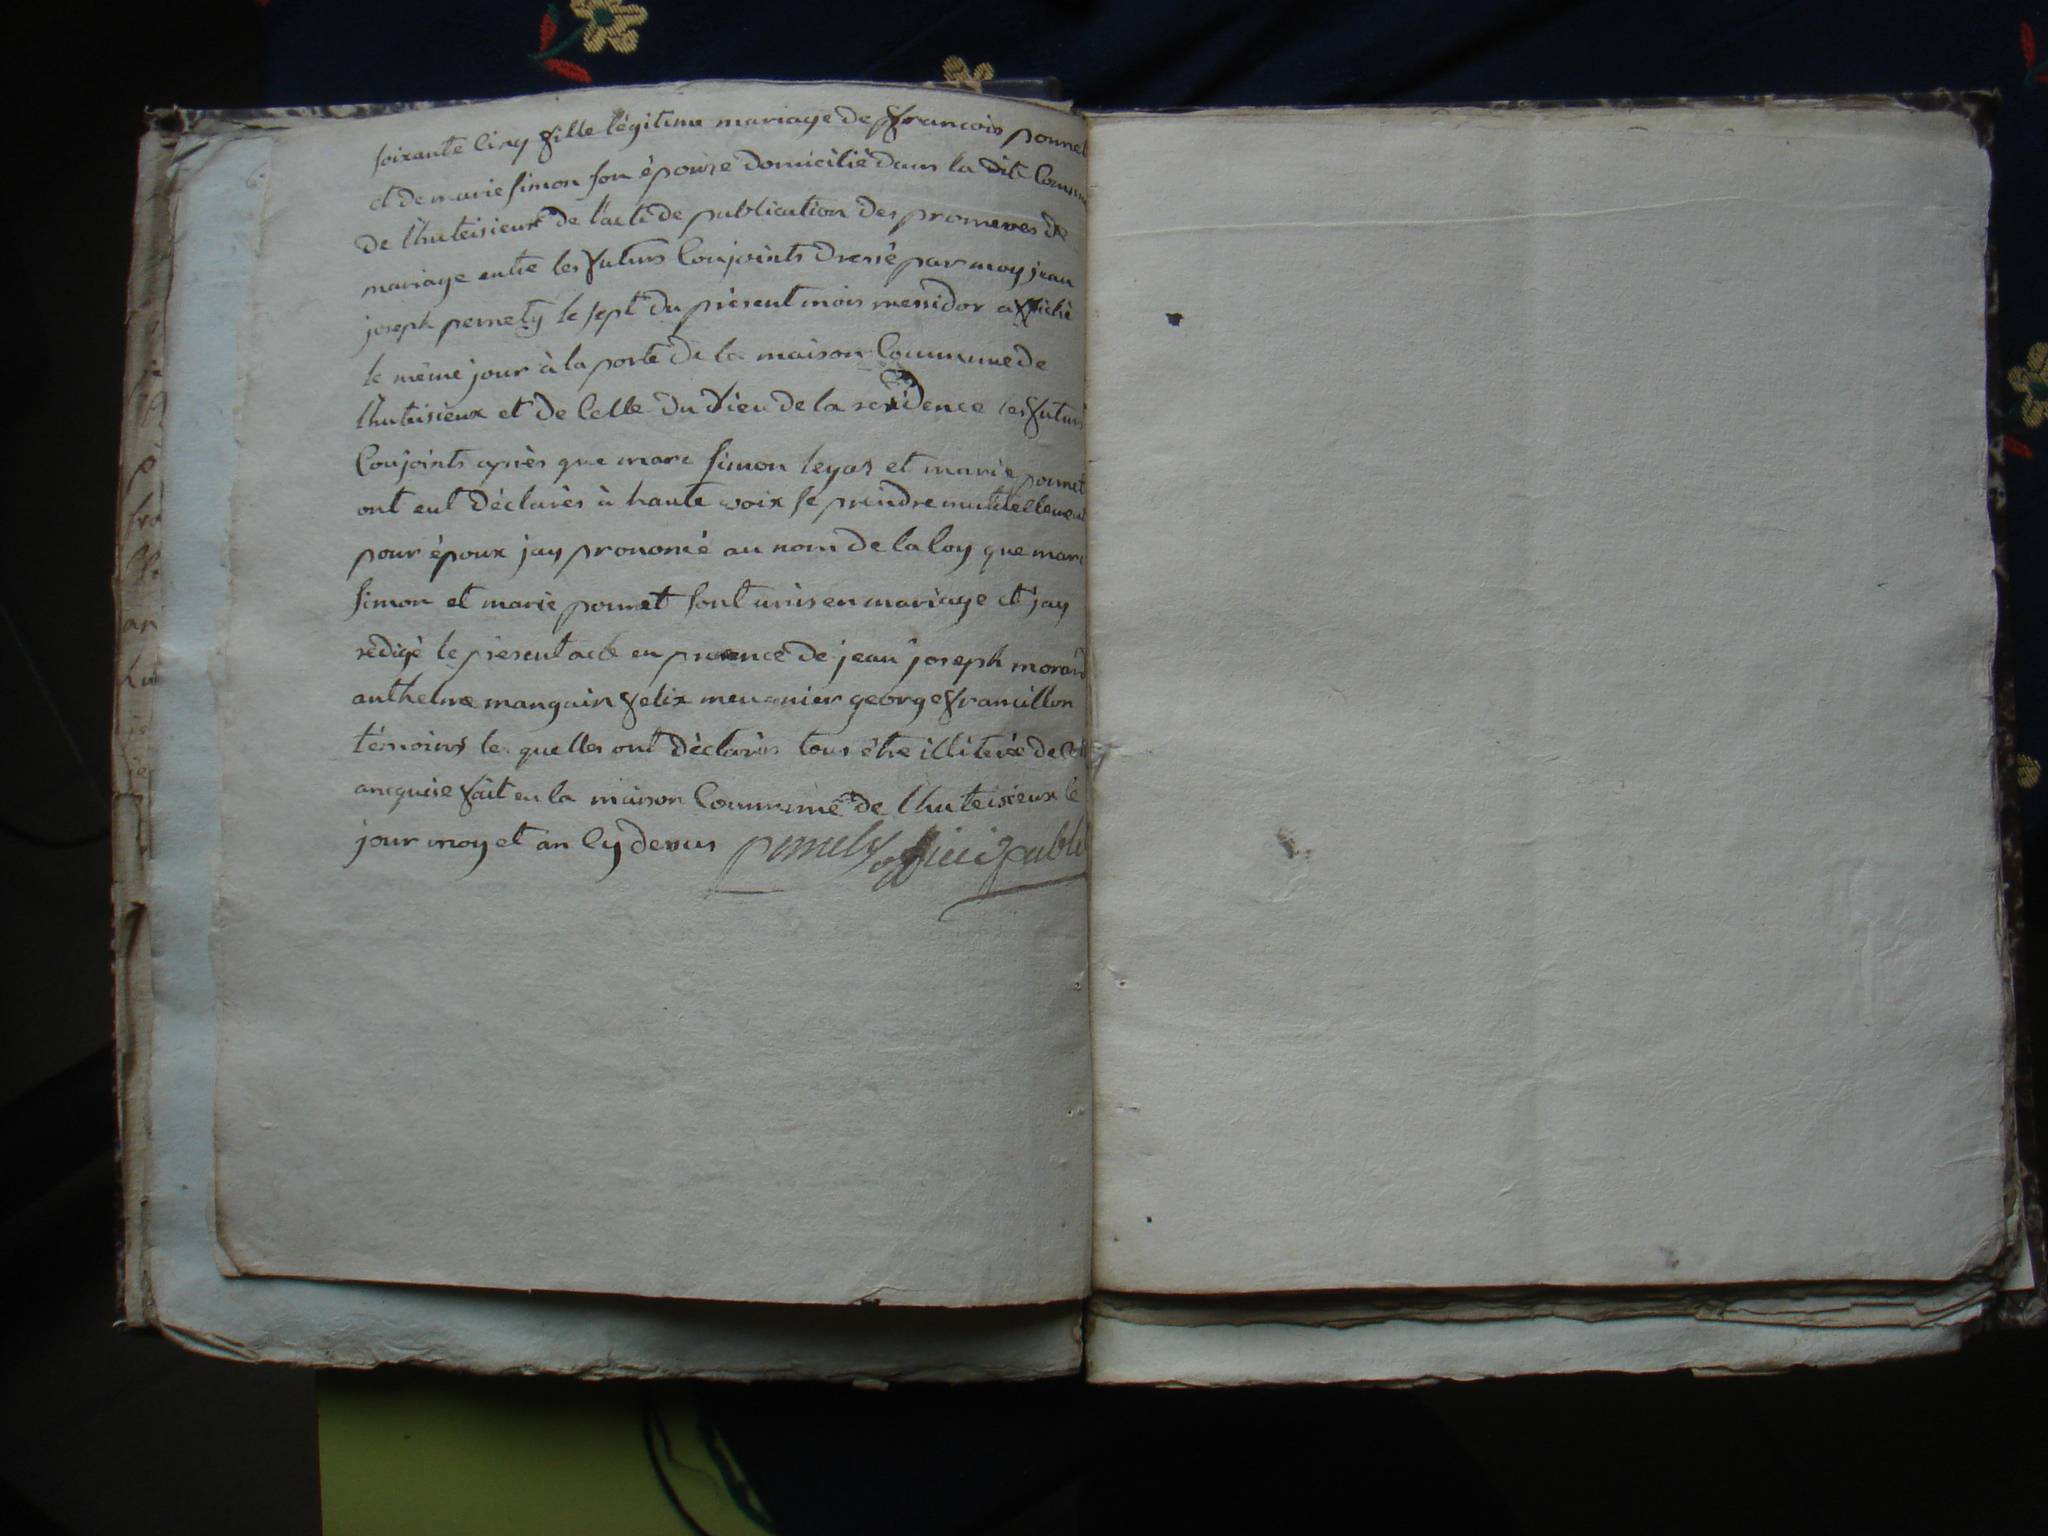 soixante cinq fille légitime mariage de françois ponnet
et de marie simon son épouse domicilié dans la dite Commun
de lhuteisieux de l'acte de publication des promeres de
mariage entre les futurs Conjoints dressé par moy jean
joseph pernety le sept du présent mois messidor affiché
le même jour à la porte de la maison Commune de
lhuteisieux et de Celle du dieu de la residence les futurs
Conjoints après que marc simon leyas et marie ponnet
ont eut déclarés à haute voix se prendre mutuellement
pour époux jay prononcé au nom de la loy que marc
simon et marie ponnet sont unis en mariage et jay
rédigé le présent acte en presence de jean joseph morard
anthelme manguin felix meugnier george francillon
témoins les quelles ont déclarés tous être illiterée de Ce
anequise fait en la maison Commune de lhuteisieux le
jour moy et an Cy dessus pernety officié publi